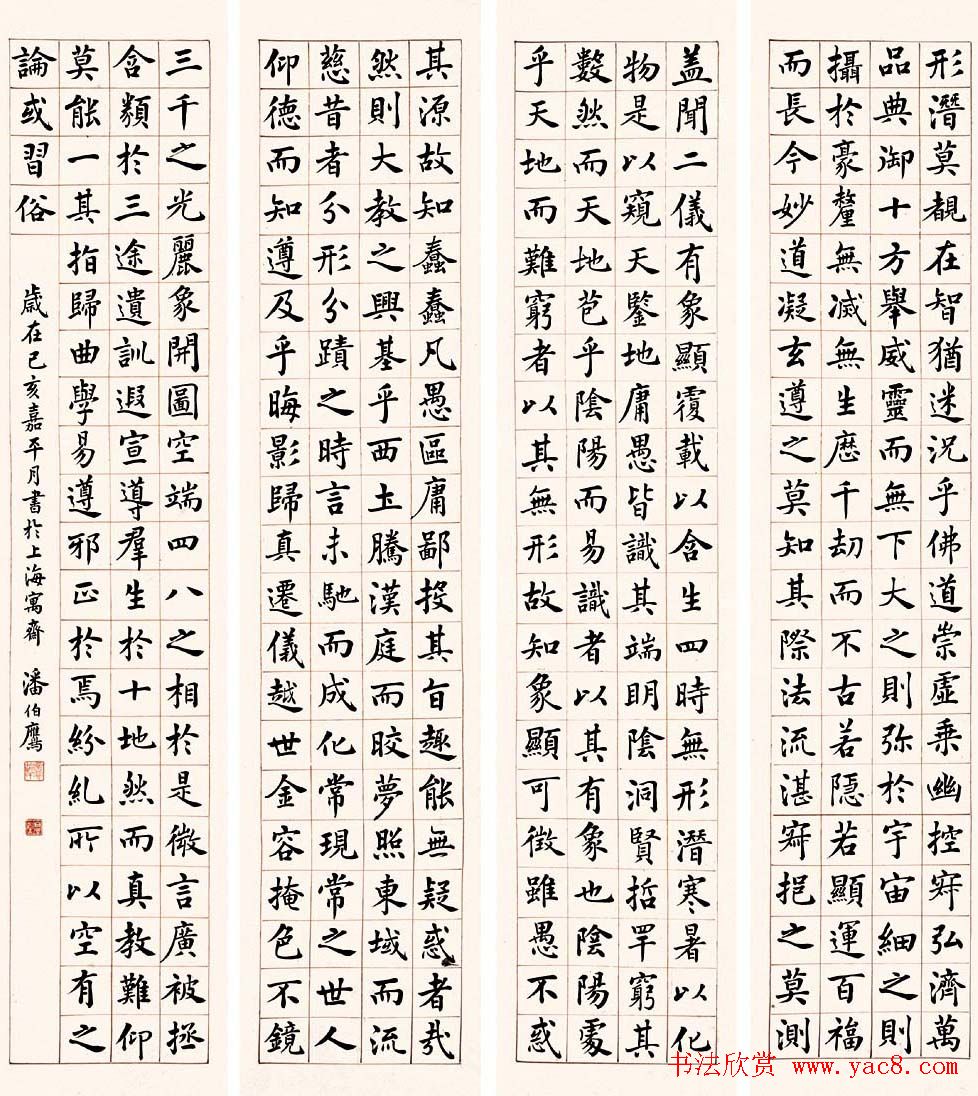 形潛莫覩在智猶迷況乎佛道崇虛乘幽控寂弘濟萬
品典御十方舉威靈而無下大之則弥於宇宙細之則
攝於豪釐無滅無生歷千劫而不古若隱若顯運百福
而長今妙道凝玄遵之莫知其際法流湛寂挹之莫測
蓋聞二儀有象顯覆載以含生四時無形潛寒暑以化
物是以窺天鑒地庸愚皆識其端明陰洞賢哲罕窮其
數然而天地苞乎陰陽而易識者以其有象也陰陽處
乎天地而難窮者以其無形故知象顯可徵雖愚不惑
其源故知蠢蠢凡愚區庸鄙投其旨趣能無疑惑者哉
然則大教之興基乎西土騰漢庭而皎夢照東域而流
慈昔者分形分蹟之時言未馳而成化常現常之世人
仰德而知遵及乎晦影歸真遷儀越世金容掩色不鏡
三千之光麗象開圖空端四八之相於是微言廣被拯
含類於三途遺訓遐宣導羣生於十地然而真教難仰
莫能一其指歸曲學易遵邪正於焉紛糺所以空有之
論或習俗
歲在己亥嘉平月書於上海寓齋 潘伯鷹
书法欣赏 www.yac8.com